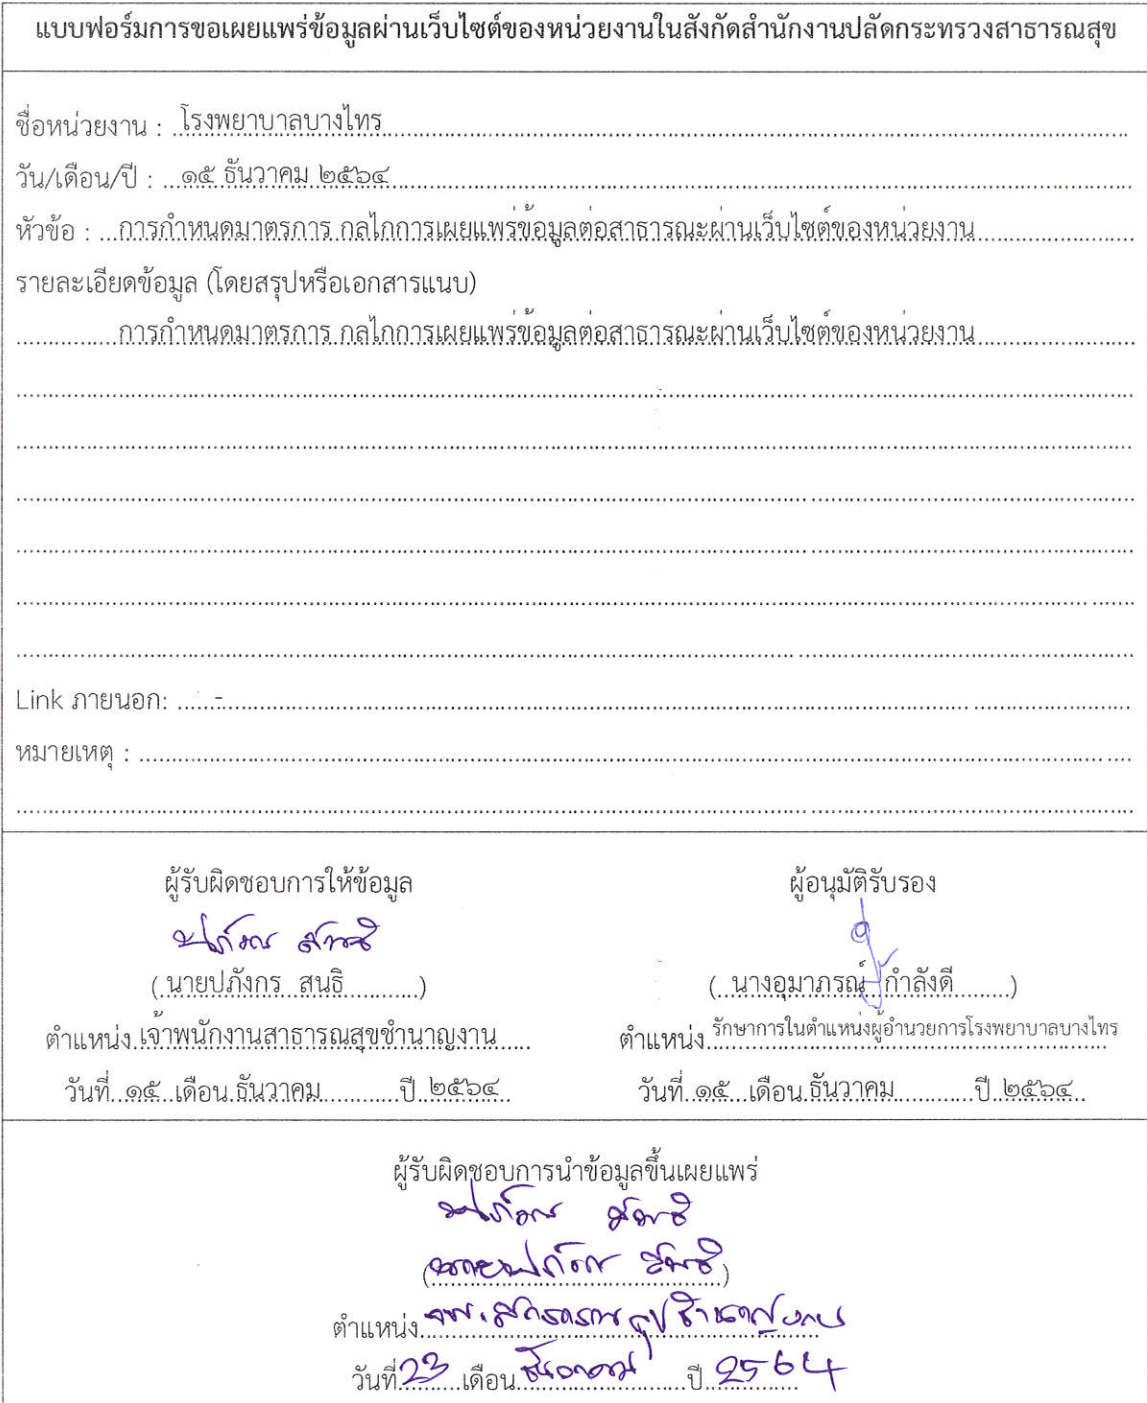 แบบฟอร์มการขอเผยแพร่ข้อมูลผ่านเว็บไซต์ของหน่วยงานในสังกัดสำนักงานปลัดกระทรวงสาธารณสุข
ชื่อหน่วยงาน : โรงพยาบาลบางไทร
วัน/เดือน/ปี : ๑๕ ธันวาคม ๒๕๖๔
หัวข้อ : การกำหนดมาตรการ กลไกการเผยแพร่ข้อมูลต่อสาธารณะผ่านเว็บไซต์ของหน่วยงาน
รายละเอียดข้อมูล (โดยสรุปหรือเอกสารแนบ)
การกำหนดมาตรการ กลไกการเผยแพร่ข้อมูลต่อสาธารณะผ่านเว็บไซต์ของหน่วยงาน
Link ภายนอก: -
หมายเหตุ :
ผู้รับผิดชอบการให้ข้อมูล
ปภังกร สนธิ
( นายปภังกร สนธิ )
ตำแหน่ง เจ้าพนักงานสาธารณสุขชำนาญงาน
วันที่ ๑๕ เดือน ธันวาคม ปี ๒๕๖๔
ผู้อนุมัติรับรอง
( นางอุมาภรณ์ กำลังดี )
ตำแหน่ง รักษาการในตำแหน่งผู้อำนวยการโรงพยาบาลบางไทร
วันที่ ๑๕ เดือน ธันวาคม ปี ๒๕๖๔
ผู้รับผิดชอบการนำข้อมูลขึ้นเผยแพร่
ปภังกร สนธิ
(นายปภังกร สนธิ)
ตำแหน่ง จพ.สาธารณสุขชำนาญงาน
วันที่ 23 เดือน ธันวาคม ปี 2564